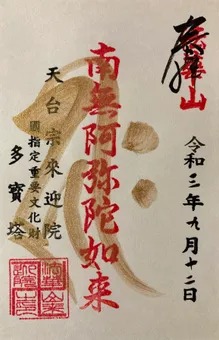 奉拝
山
令和三年九月十二日
南無阿弥陀如来
天台宗來迎院
國指定重要文化財
多寶塔